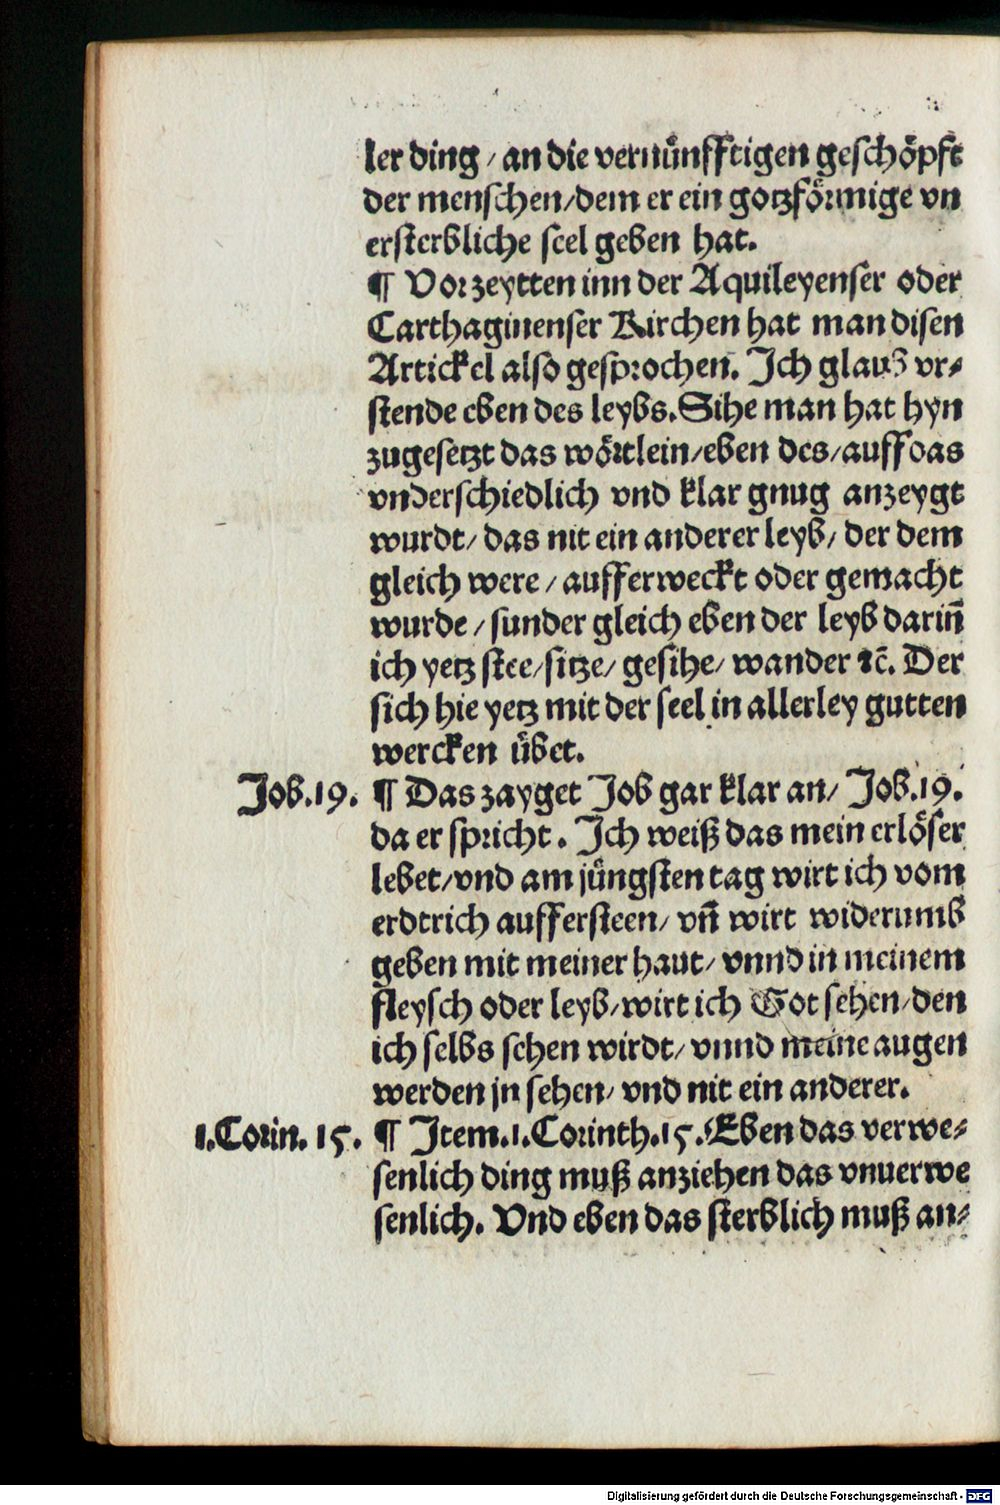 ler ding / an die vernünfftigen geschöpft
der menschen/dem er ein gotzförmige vn
ersterbliche seel geben hat.
¶ Vorzeytten inn der Aquileyenser oder
Carthaginenser Kirchen hat man disen
Artickel also gesprochen. Ich glaub vr⸗
stende eben des leybs. Sihe man hat hyn
zugesetzt das wörtlein/eben des/auff das
vnderschiedlich vnd klar gnug anzeygt
wurdt/ das nit ein anderer leyb/ der dem
gleich were / aufferweckt oder gemacht
wurde / sunder gleich eben der leyb darin̄
ich yetz stee/sitze/ gesihe/ wander ꝛc̄. Der
sich hie yetz mit der seel in allerley gutten
wercken übet.
Job.19. ¶ Das zayget Job gar klar an/ Job.19.
da er spricht. Ich weiß das mein erlöser
lebet/vnd am jüngsten tag wirt ich vom
erdtrich auffersteen/ vn̄ wirt widerumb
geben mit meiner haut/ vnnd in meinem
fleysch oder leyb/wirt ich Got sehen/den
ich selbs sehen wirdt/ vnnd meine augen
werden jn sehen/ vnd nit ein anderer.
1.Corin. 15. ¶ Item.1.Corinth.15.Eben das verwe⸗
senlich ding muß anziehen das vnuerwe
senlich. Vnd eben das sterblich muß an⸗
Digitalisierung gefördert durch die Deutsche Forschungsgemeinschaft - DFG